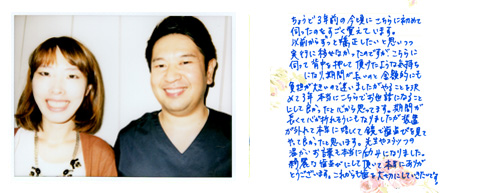 ちょうど3年前の今頃にこちらに初めて
伺ったのをすごく覚えています。
以前からずっと矯正したいと思いつつ
実行に移せなかったのですが、こちらに
伺って背中を押して頂けたような気持ち
になり、期間が長いのと金額的にも
負担が大きいので迷いましたがやることを決
めて3年 本当にこちらでお世話になること
にして良かったと心から思ってます。期間が
長くて心が折れそうにもなりましたが装置
が外れて本当に嬉しくて鏡で歯並びを見て
やって良かったと思います。先生やスタッフの
温かいお言葉も本当に励みになりました。
綺麗な歯並びにして頂いて本当にありが
とうございます。これからも歯を大切にしていきたいです。